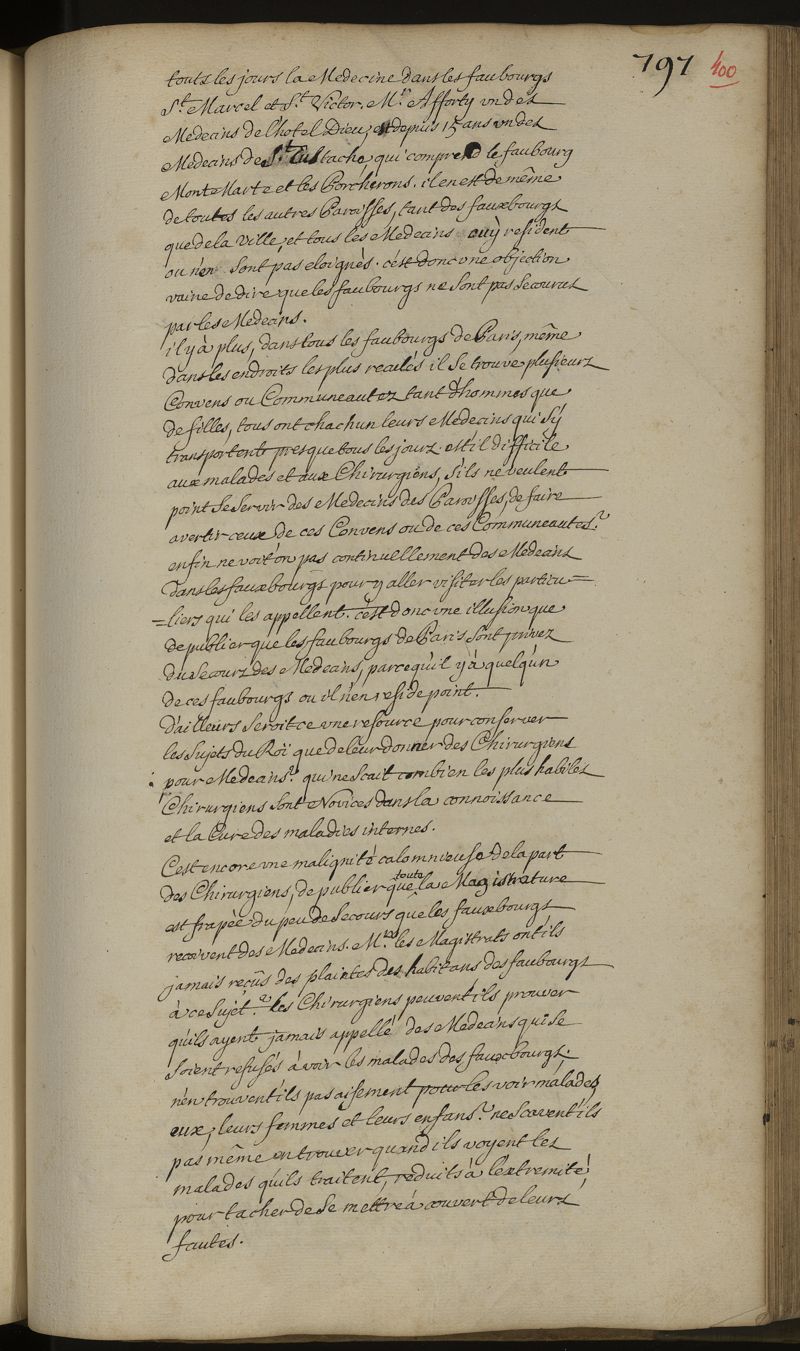 797 400
touts les jours la Medecine dans les faubourgs
St. Marcel et St. Victor. Mr. Afforty un des
Medecins de l'hotel Dieu, est depuis 15 ans un des
Medecins de St. Eustache, qui comprend le faubourg
MontMarte et les Porcherons. il en est de même
de toutes les autres Paroisses, tant des fauxbourgs
que de la ville, et tous les Medecins ouÿ resident
ou n'en sont pas eloignès. c'est donc une objection
vaine de dire que les faubourgs ne sont pas secourus
par les Medecins.
il y à plus, dans tous les faubourgs de Paris, même
dans les endroits les plus reculés il se trouve plusieurs
Convens ou Communeautez tant d'hommes que
de filles, tous ont chachun leurs Medecins qui s'y
transportent presque tous les jours. est il difficile
aux malades et aux Chirurgiens, s'ils ne veulent
point se servir des Medecins des Paroisses, de faire
avertir ceux de ces Convens ou de ces Communeautes?
enfin ne voit on pas continuellement des Medecins
dans les fauxbourgs pour y aller visiter les particu=
=liers qui les appellent. c'est donc une illusion que
de publier que les faubourgs de Paris sont privez
du secours des Medecins, parce qu'il y à quelqu'un
de ces faubourgs ou il n'en reside point.
D'ailleurs seroit ce une resource pour conserver
les sujets du Roi que de leur donner des Chirurgiens
pour Medecins? qui ne scait combien les plus habiles
Chirurgiens sont Novices dans la connoissance
et la Cure des maladies internes.
C'est encore une malignité calomnieuse de la part
des Chirurgiens, de publier que toute la Magistrature
est frapée du peu de secours que les fauxbourgs
recoivent des Medecins. Mrs. les Magistrats ont ils
jamais reçûs des plaintes des habitans des faubourgs
à ce sujet? les Chirurgiens peuvent ils prouver
qu'ils ayent jamais appellé des Medecins qui se
soient refusés à voir les malades des fauxbourgs.
n'en trouvent ils pas aisement pour les voir malades
eux, leurs femmes et leurs enfans? ne scavent ils
pas même en trouver quand ils voyent les
malades qu'ils traitent, reduits à l'extremité,
pour tacher de se mettre à couvert de leurs
fautes.